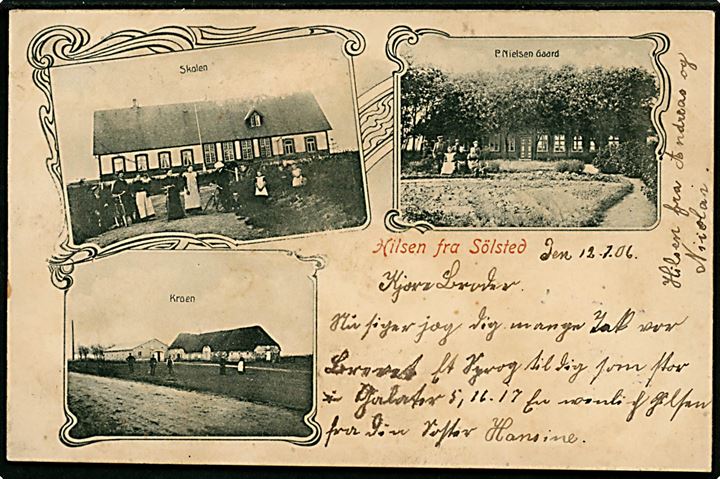 Skolen
P. Nielsen Gaard
Kroen
Hilsen fra Sölsted
den 12-7.06.
Kjære Broder.
Nu siger jeg dig mange Tak vor
Brevet Et Sprog til dig som stor
in Galater 5, 16-17 En wenlich Hilsen
fra din Søster Hansine.
Hilsen fra Andreas og
Nicolai.